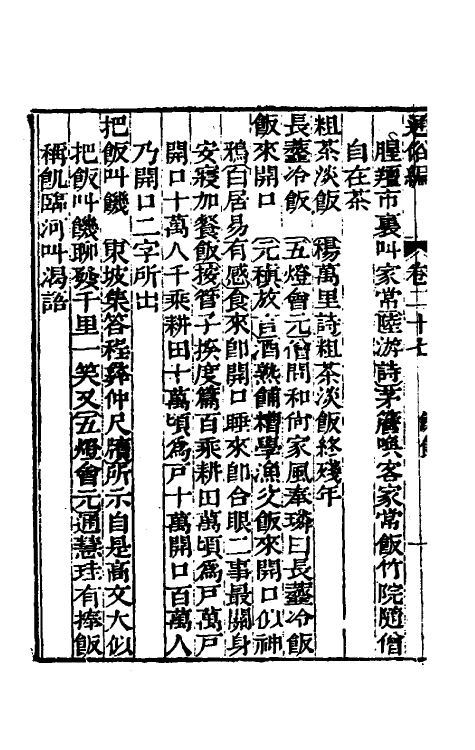 通俗編 卷二十七 飲食
腥羶市裏叫家常陸游詩茅簷喚客家常飯竹院隨僧
自在茶
粗茶淡飯 楊萬里詩粗茶淡飯終殘年
長虀冷飯 五燈會元僧問和尚家風奉璘曰長虀冷飯
飯來開口 元稹放言酒熟餔糟學漁父飯來開口似神
鴉白居易有感食來卽開口睡來卽合眼二事最關身
安寢加餐飯按管子揆度篇百乘耕田萬頃爲戸萬戸
開口十萬人千乘耕田十萬頃爲戸十萬開口百萬人
乃開口二字所出
把飯叫饑 東坡集答程彝仲尺牘所示自是高文大似
把飯叫饑聊發千里一笑又五燈會元通慧珪有捧飯
稱飢臨河叫渴語